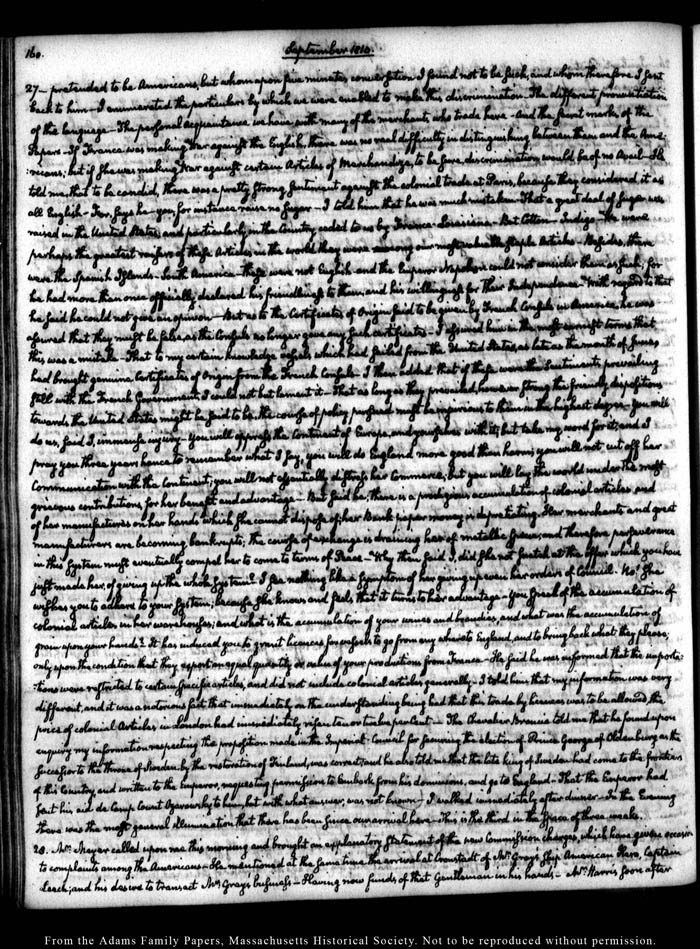 160.
September 1810.
27— pretended to be Americans, but whom upon five minutes conversation I found not to be such, and whom therefore I sent
back to him— I enumerated the particulars by which we were enabled to make this discrimination. The different pronunciation
of the language— The personal acquaintance we have with many of the merchants who trade here— And the faint marks of the
Papers— If France was making War against the English, there was no real difficulty in distinguishing between them and the Ame-
ricans; but if she was making War against certain Articles of Merchandize, to be sure discrimination would be of no avail— He
told me that to be candid, there was a pretty strong sentiment against the colonial trade at Paris, because they considered it as
all English— For, says he— you for instance raise no sugar— I told him that he was much mistaken— That a great deal of sugar was
raised in the United States, and particularly in the Country ceded to us by France— Louisiana— But Cotton— Indigo— We were
perhaps the greatest raisers of these Articles in the world they were among our most valuable staple Articles— Besides, there
were the Spanish Islands— South America— These were not English— and the Emperor Napoleon could not consider them as such, for
he had more than once officially declared his friendliness to them, and his willingness for their Independence— With regard to that
he said he could not give an opinion— But as to the Certificates of Origin said to be given by French Consuls in America, he was
assured that they must be false, as the Consuls no longer gave any such certificates— I assured him in the most earnest terms that
this was a mistake— That to my certain knowledge vessels which had sailed from the United States, as late as the month of June,
had brought genuine Certificates of Origin from the French Consuls— I then added that if these were the sentiments prevailing
still with the French Government, I could not but lament it— That as long as they prevailed, however strong the friendly dispositions
towards the United States might be said to be, the course of policy pursued must be injurious to them in the highest degree— You will
do us, said I, immense injury— You will oppress the Continent of Europe, and yourselves with it; but take my word for it, and I
pray you three years hence to remember what I say, you will do England more good than harm; you will not cut off her
Communication with the Continent; you will not essentially distress her Commerce; but you will lay the world under the most
grievous contributions, for her benefit and advantage— But said he, there is a prodigious accumulation of colonial articles and
of her manufactures on her hands which she cannot dispose of; her Bank paper money is depreciating. Her merchants and great
manufacturers are becoming bankrupts; the course of exchange is draining her of metallic specie; and therefore perseverance
in this System must eventually compel her to come to terms of Peace— Why then said I, did she not snatch at the offer which you have
just made her, of giving up the whole System? I see nothing like a symptom of her giving up even her orders of Council. No! She
wishes you to adhere to your System; because she knows and feels that it turns to her advantage— You speak of the accumulation of
colonial articles in her warehouses; and what is the accumulation of your wines and brandies, and what was the accumulation of
grain upon your hands? It has induced you to grant licences for vessels to go from any where to England, and to bring back what they please;
only upon the condition that they export an equal quantity or value of your productions from France— He said he was informed that the importa-
tions were restricted to certain specific articles, and did not include colonial articles generally— I told him that my information was very
different, and it was a notorious fact that immediately on the understanding being had that the trade by licences was to be allowed, the
price of colonial Articles in London had immediately risen ten or twelve per Cent— The Chevalier Brancia told me that he found upon
enquiry my information respecting the proposition made in the Imperial Council for securing the election of Prince George of Oldenburg as the
successor to the throne of Sweden by the restoration of Finland, was correct; and he also told me that the late king of Sweden had come to the frontiers
of this Country and written to the Emperor, requesting permission to Embark from his dominions, and go to England— That the Emperor had
sent his aid de Camp Count Ozarowsky to him, but with what answer, was not known— I walked immediately after dinner— In the Evening
there was the most general illumination that there has been since our arrival here— This is the third in the space of three weeks.
28. Mr. Meyer called upon me this morning and brought an explanatory Statement of the new Commission charges, which have given occasion
to complaints among the Americans— He mentioned at the same time the arrival at Cronstadt of Mr. Gray's ship American Hero, Captain
Leech; and his desire to transact Mr. Gray's business— Having now funds of that Gentleman in his hands— Mr. Harris soon after
From the Adams Family Papers, Massachusetts Historical Society. Not to be reproduced without permission.